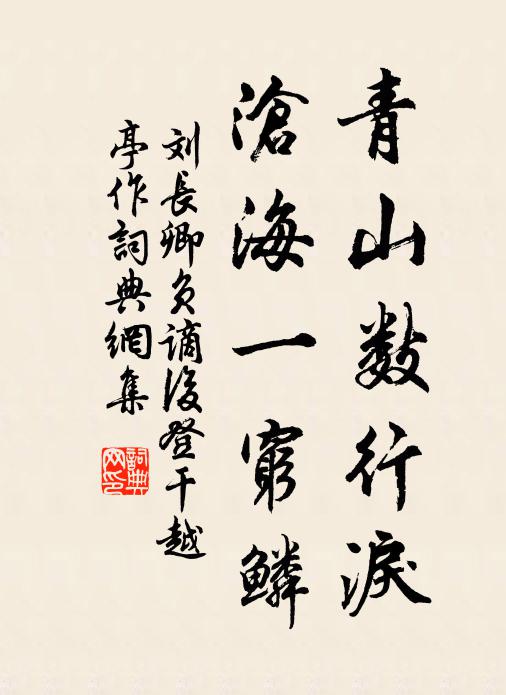 青山数行淚
滄海一窮鱗
刘長卿負謫後登干越
亭作詞典網集
詞典网印